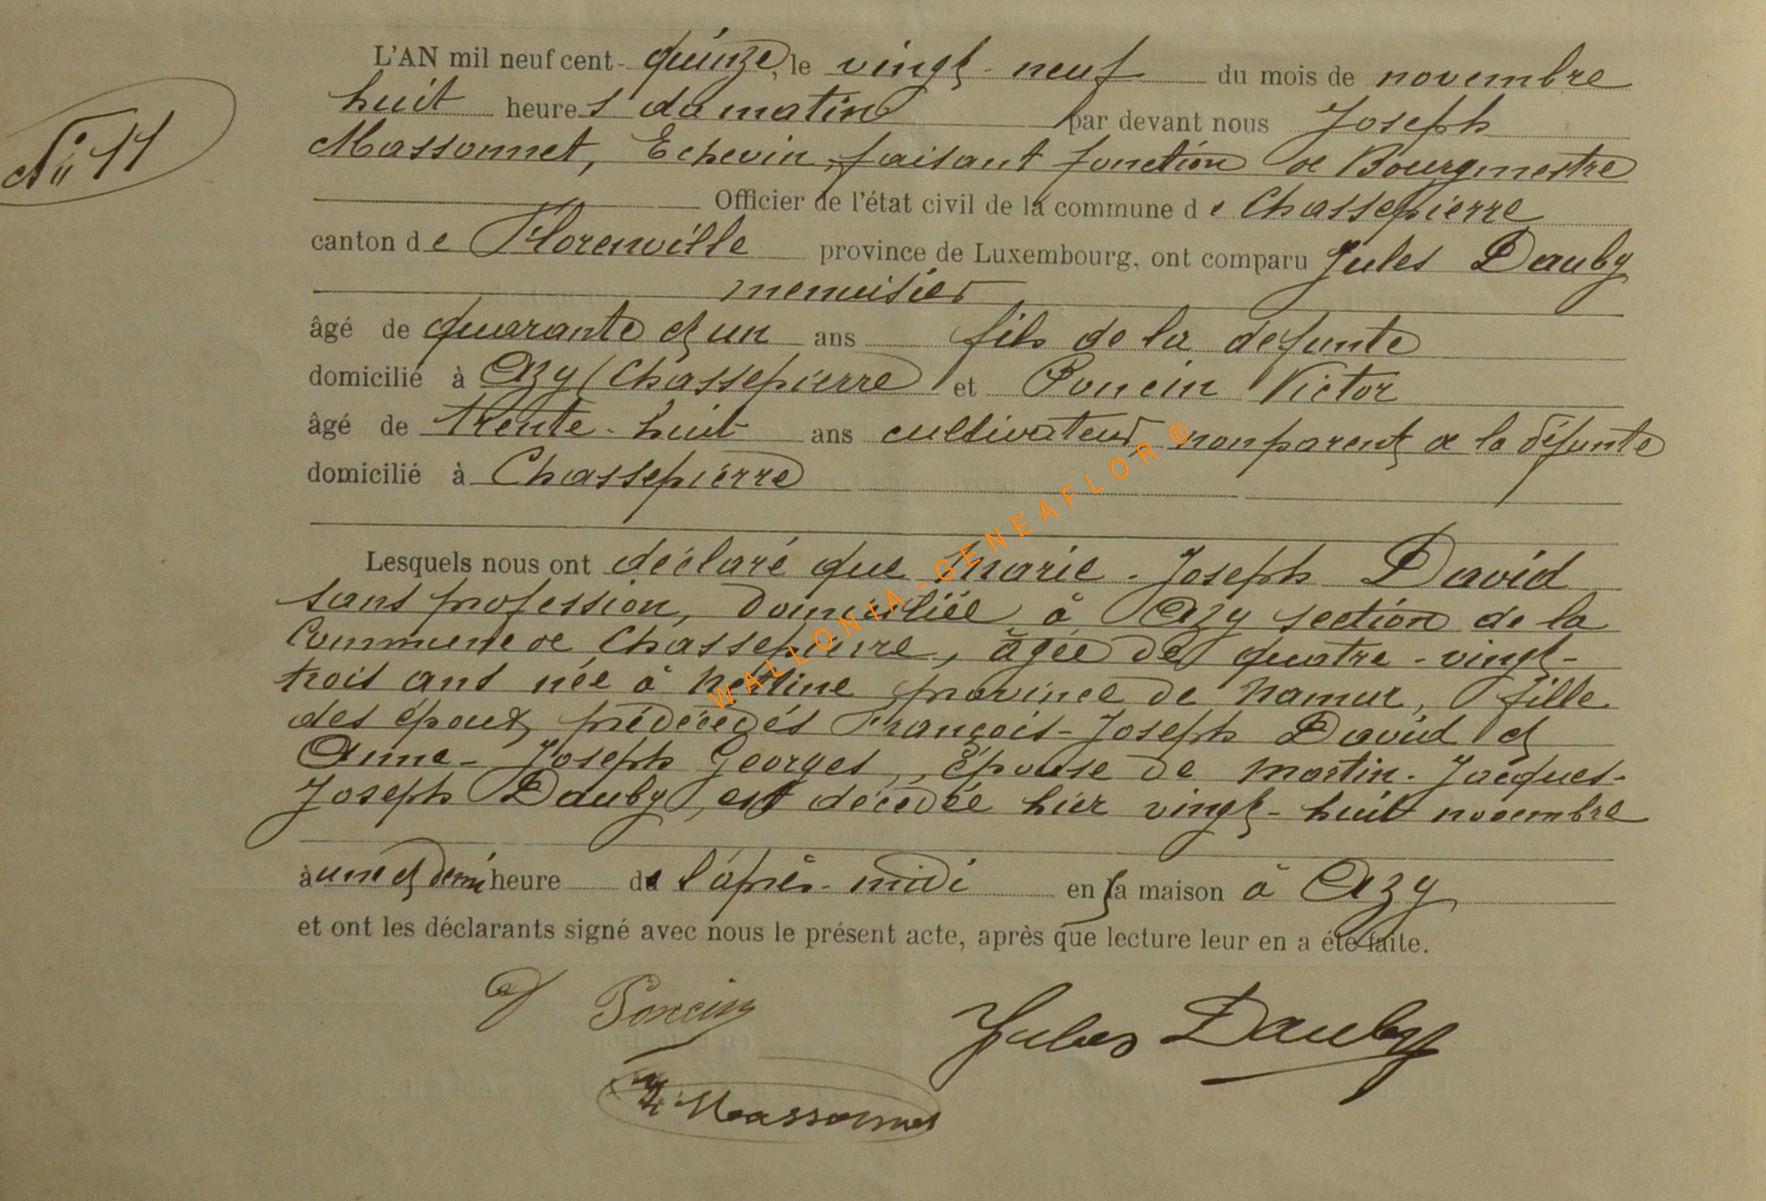 L'AN mil neuf cent- quinze, le vingt-neuf du mois de novembre
huit heures du matin par devant nous Joseph
N° 11
Massonnet, Echevin, faisant fonction de Bourgmestre
Officier de l'état civil de la commune de Chassepierre
canton de Florenville province de Luxembourg, ont comparu Jules Dauby
menuisier
âgé de quarante et un ans fils de la défunte
domicilié à Azy (Chassepierre) et Poncin Victor
âgé de trente-huit ans cultivateur non parent de la défunte
domicilié à Chassepierre
Lesquels nous ont déclaré que Marie-Joseph David
sans profession, domiciliée à Azy section de la
Commune de Chassepierre, âgée de quatre-vingt-
trois ans née à province de Namur, fille
des époux prédécédés François-Joseph David et
Anne-Joseph Georges, Epouse de Martin-Jacques-
Joseph Dauby, est décédée hier vingt-huit novembre
à une et demi heure de l'après-midi en sa maison à Azy
et ont les déclarants signé avec nous le présent acte, après que lecture leur en a été faite.
Poncin
Jules Dauby
Massonnet
WALLONIA-GENEAFLOR®